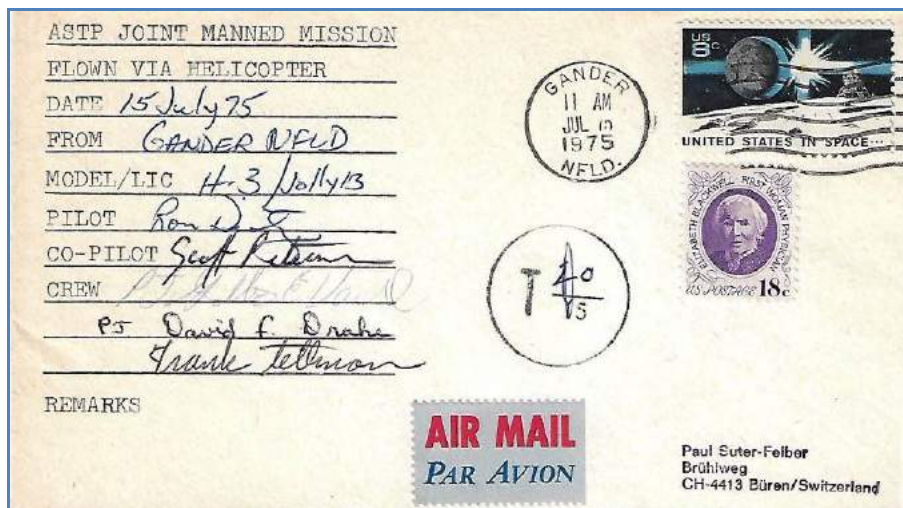 ASTP JOINT MANNED MISSION
FLOWN VIA HELICOPTER
DATE 15 July 75
FROM GANDER NFLD
MODEL/LIC H-3/Jolly 13
PILOT Ron
CO-PILOT Scott
CREW
PJ David F. Drake
Frank
REMARKS
GANDER
11 AM
JUL
1975
NFLD.
US
8c
UNITED STATES IN SPACE...
ELIZABETH BLACKWELL FIRST WOMAN PHYSICIAN
US POSTAGE 18c
T
AIR MAIL
PAR AVION
Paul Suter-Felber
Brühlweg
CH-4413 Büren/Switzerland